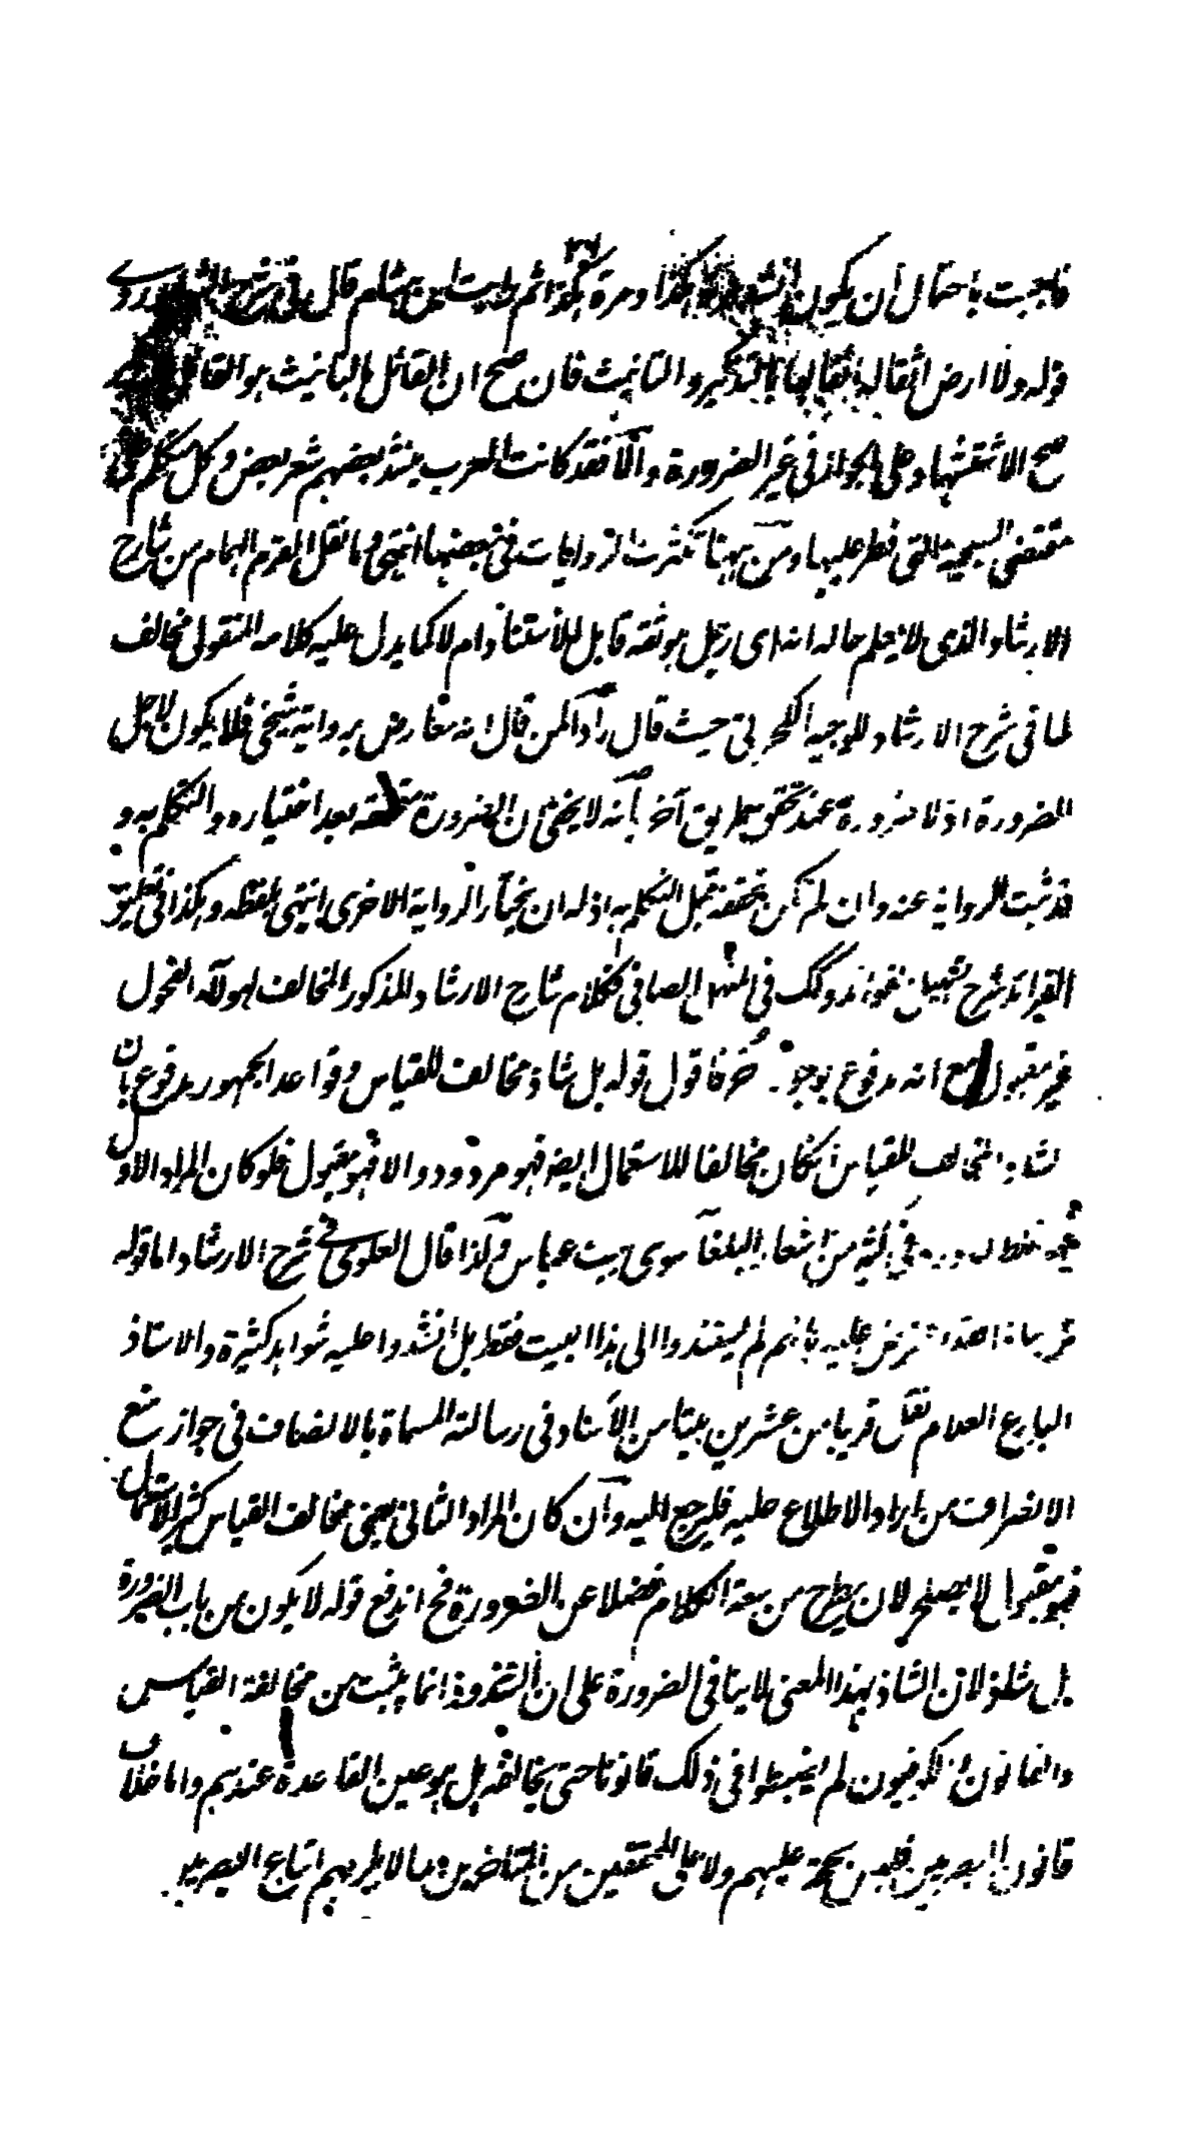 فاجبت باحتمال ان يكون انشده هكذا ومرة هكذا ثم رايت ابن هشام قال في شرح الشواهد وروي
قوله ولا ارض ابقل ابقالها بالتذكير والتانيث فان صح ان القائل بالتانيث هو القائل
صح الاستشهاد على الجواز في غير الضرورة والا فقد كانت العرب ينشد بعضهم شعر بعض وكل يتكلم على
مقتضى السجية التي فطر عليها ومن ههنا تكثرت الروايات في بعضها انتهى وما نقل القرم الهمام من شارح
الارشاد الذي لا يعلم حاله انه اي رجل هو ثقة قابل للاستناد ام لا كما يدل عليه كلامه المنقول مخالف
لما في شرح الارشاد للوجيه حيث قال رادا لمن قال انه معارض برواية شيخي فلا يكون لاجل
الضرورة اذ لا ضرورة عند تحقق طريق آخر بأنه لا يخفى ان الضرورة متحققة بعد اختياره والتكلم به و
قد ثبت الرواية عنه وان لم تكن متحققة قبل التكلم به اذ له ان يختار الرواية الاخرى انتهى بلفظه وهكذا في تعليق
الفرائد شرح تسهيل الفوائد وكذلك في المنهل الصافي فكلام شارح الارشاد المذكور المخالف لهولاء الفحول
غير مقبول مع انه مدفوع بوجوه أخر فاقول قوله بل شاذ مخالف للقياس وقواعد الجمهور مدفوع بان
الشاذ المخالف للقياس ان كان مخالفا للاستعمال ايضا فهو مردود والا فهو مقبول فلو كان المراد الاول
فهو غلط لوروده في كثير من اشعار البلغاء سوى بيت عباس وكذا قال العلوي في شرح الارشاد واما قوله
فربما اعترض عليه بانهم لم يستندوا الى هذا البيت فقط بل انشدوا عليه شواهد كثيرة والاستاذ
البارع العلام نقل قريبا من عشرين بيتا من الأسناد في رسالته المسماة بالانصاف في جواز منع
الانصراف من اراد الاطلاع عليه فليرجع اليه وان كان المراد الثاني يعني مخالف القياس كثير الاستعمال
فهو مقبول لا يصلح لان يطرح من سعة الكلام فضلا عن الضرورة فح اندفع قوله لا يكون من باب الضرورة
بل شاذ لان الشاذ بهذا المعنى لا ينافي الضرورة على ان الشذوذ انما يثبت من مخالفة القياس
والقانون والكوفيون لم يضبطوا في ذلك قانونا حتى يخالفه بل هو عين القاعدة عندهم واما خلاف
قانون البصريين فليس بحجة عليهم ولا على المحققين من المتاخرين مما لا يلزمهم اتباع البصريين